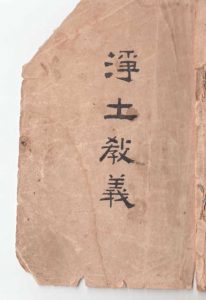 淨土教義